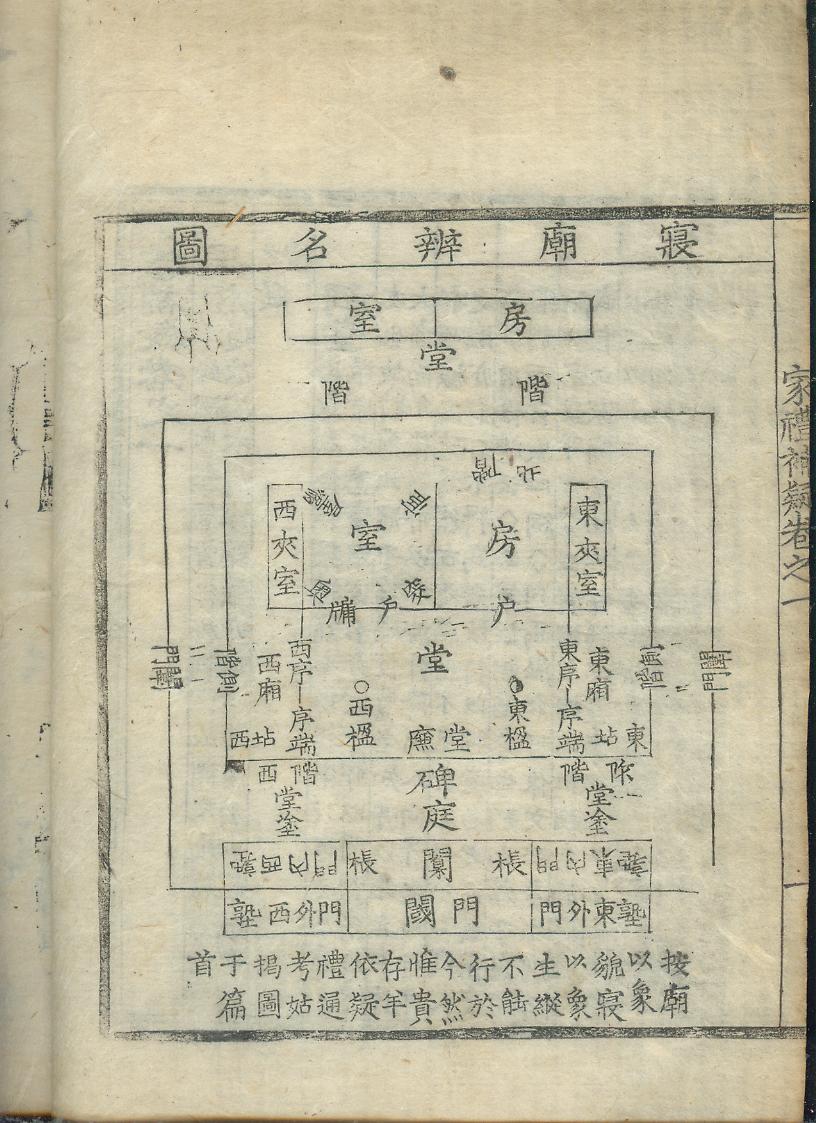 寢廟辨名圖
房室
堂
階 階
北階
東夾室
房
室
西夾室
戶
戶牖
堂
東序
序端
東廂
東坫
西序
序端
西廂
西坫
東楹
西楹
堂廉
側階
闈門
階
西階
堂塗
堂塗
碑
庭
棖 闑 棖
門內西塾
塾東外門
門閾
門外西塾
按廟
以象
貌寢
以象
生縱
不能
行於
今然
惟貴
存羊
依疑
禮通
考姑
揭圖
于篇
首
家禮補疑卷之一
一